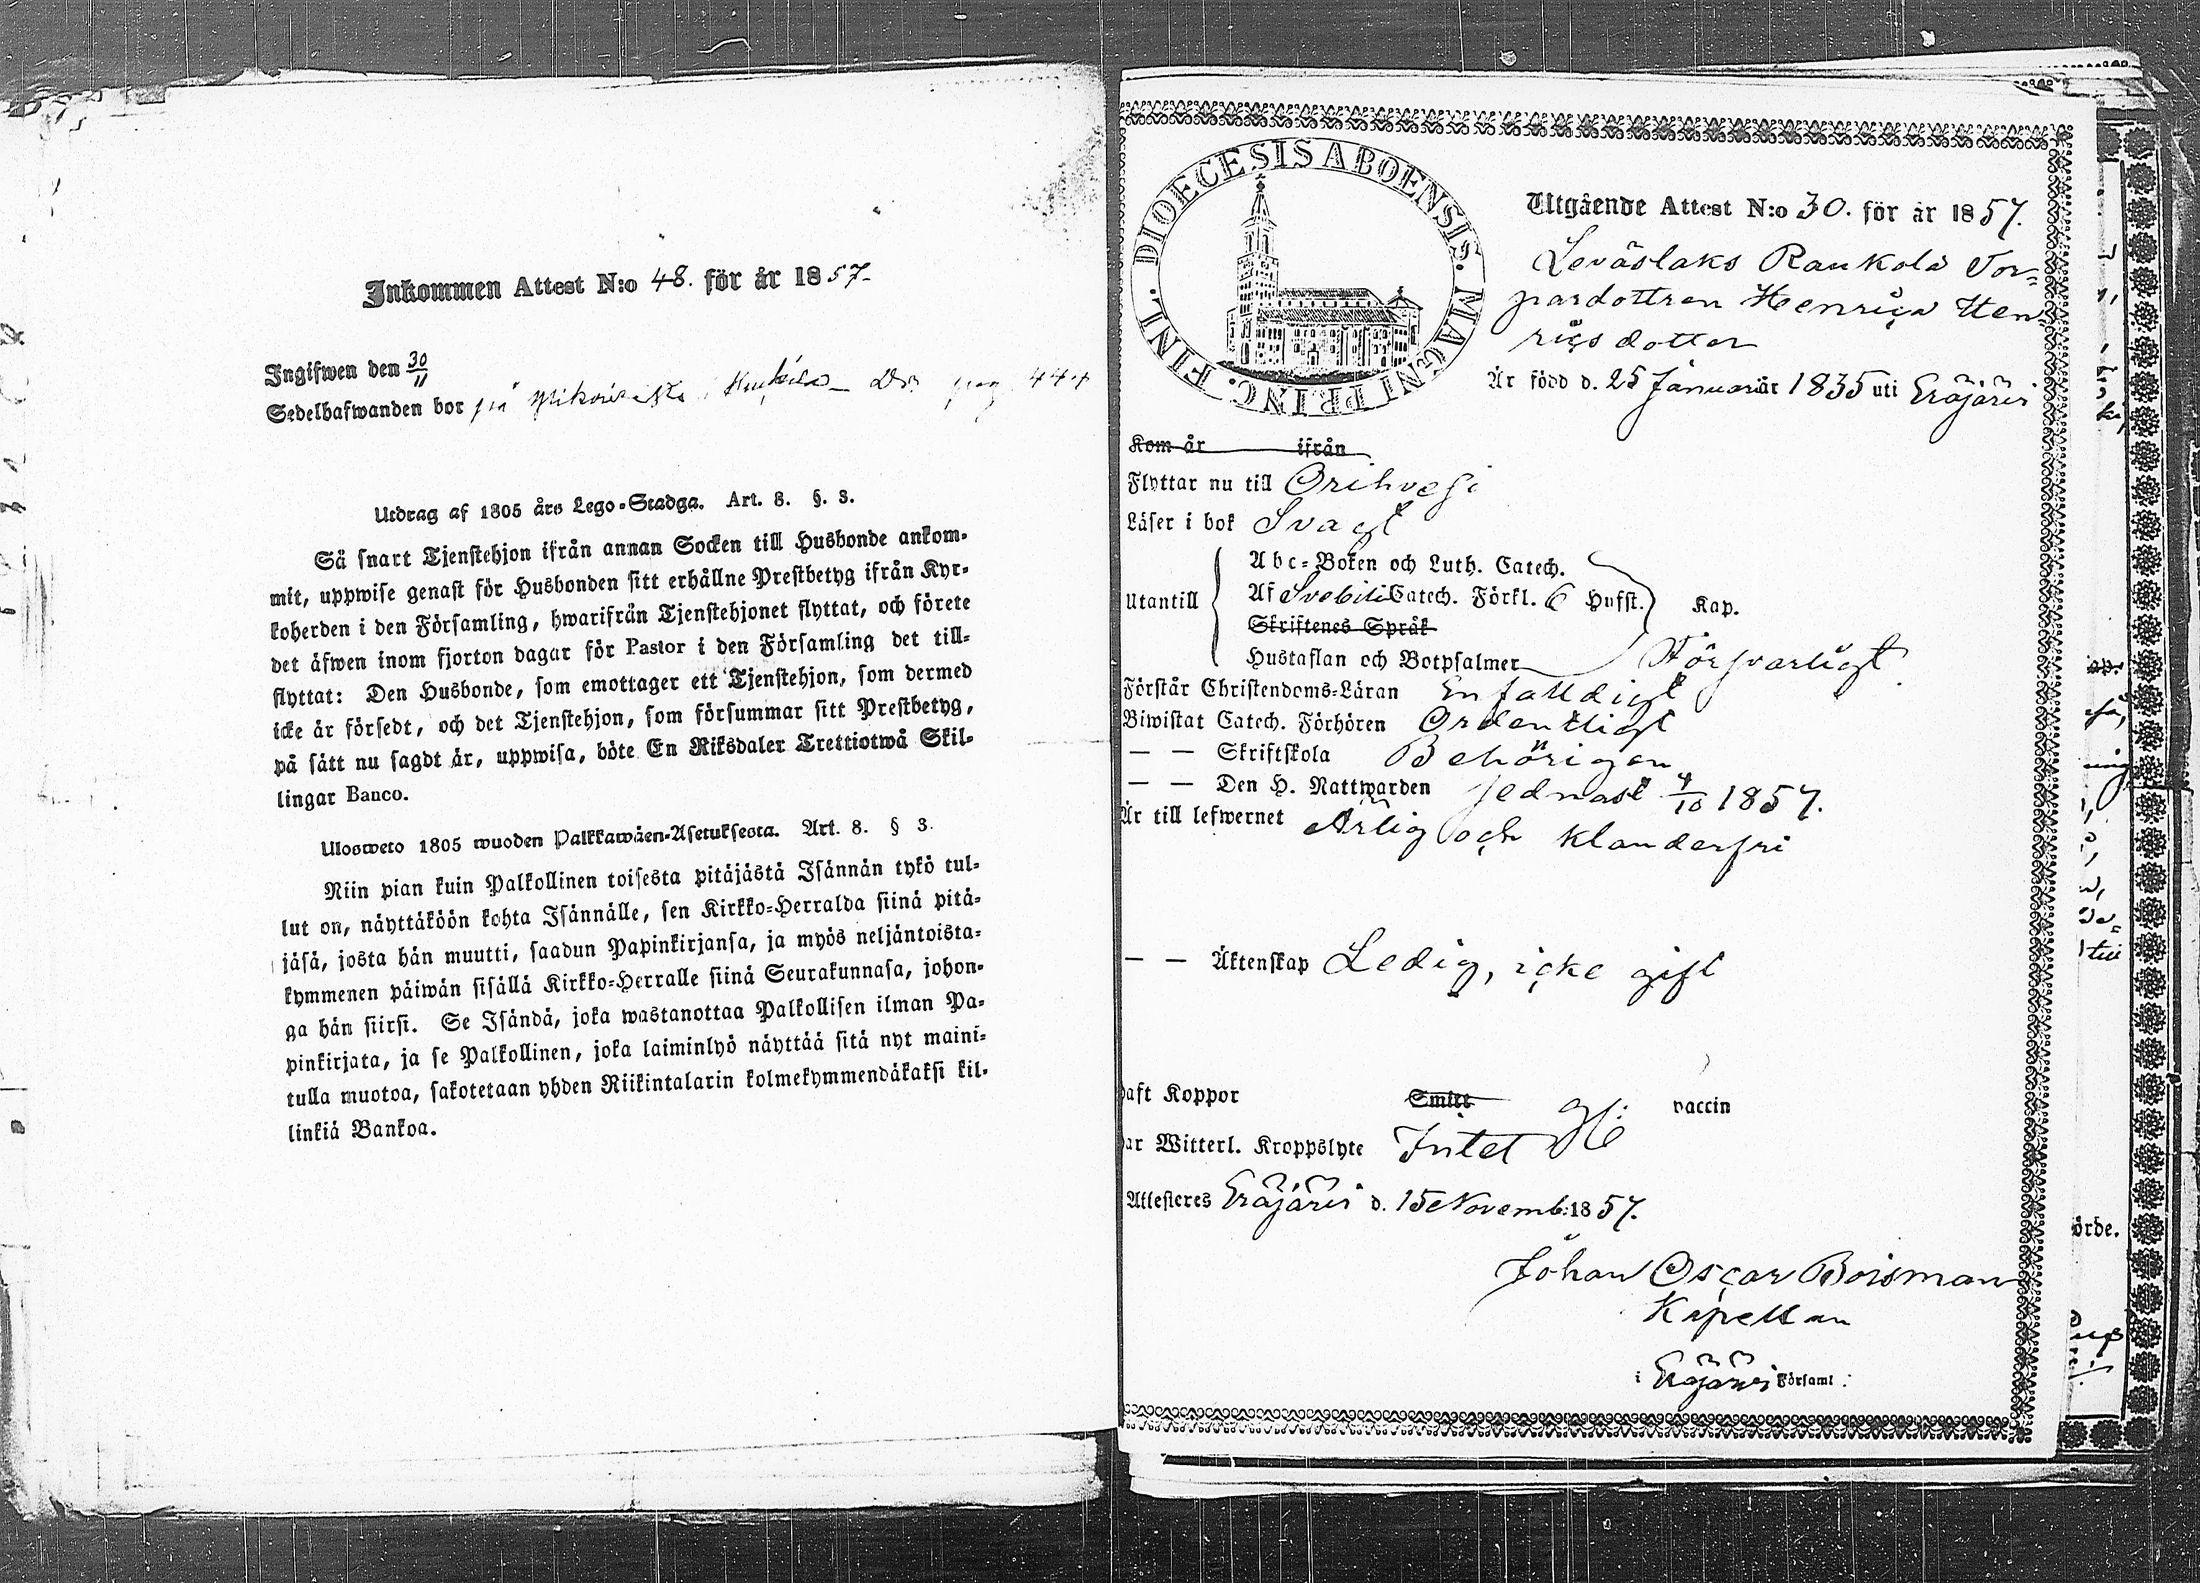 Inkommen Attest N:o 48. för år 1857.
Ingifwen den 30/11
Sedelhafwanden bor på
Utdrag af 1805 års Lego-Stadga. Art. 8. §. 3.
Så snart Tjenstehjon ifrån annan Socken till Husbonde ankom-
mit, uppwise genast för Husbonden sitt erhållne Prestbetyg ifrån Kyr-
koherden i den Församling, hwarifrån Tjenstehjonet flyttat, och förete
det äfwen inom fjorton dagar för Pastor i den Församling det till-
flyttat: Den Husbonde, som emottager ett Tjenstehjon, som dermed
icke är försedt, och det Tjenstehjon, som försummar sitt Prestbetyg,
på sätt nu sagdt är, uppwisa, böte En Riksdaler Trettiotwå Skil-
lingar Banco.
Ulosweto 1805 wuoden Palkkawäen-Asetuksesta. Art. 8. § 3.
Niin pian kuin Palkollinen toisesta pitäjästä Isännän tykö tul-
lut on, näyttäköön kohta Isännälle, sen Kirkko-Herralda siinä pitä-
jäsä, josta hän muutti, saadun Papinkirjansa, ja myös neljäntoista-
kymmenen päiwän sisällä Kirkko-Herralle siinä Seurakunnasa, johon-
ga hän siirsi. Se Isändä, joka wastanottaa Palkollisen ilman Pa-
pinkirjata, ja se Palkollinen, joka laiminlyö näyttää sitä nyt maini-
tulla muotoa, sakotetaan yhden Riikintalarin kolmekymmendäkaksi kil-
linkiä Bankoa.
DIOECESIS ABOENSIS. MAGNI PRINC. FINL.
Utgående Attest N:o 30. för år 1857.
Leväslaks Raukola Tor-
pardottren Henrica Hen-
ricsdotter
Är född d. 25 Januari år 1835 uti Eräjärvi
Kom år ifrån
Flyttar nu till Orihvesi
Läser i bok Svagt
Abc-Boken och Luth. Catech.
Utantill Af Svebilii Catech. Förkl. 6 Hufst. Kap.
Skriftenes Språk
Hustaflan och Botpsalmer Försvarligt
Förstår Christendoms-Läran Enfaldigt
Biwistat Catech. Förhören Ordentligt
— — Skriftskola Behörigen
— — Den H. Nattwarden sednast 4/10 1857.
Är till lefwernet Ärlig och klanderfri
— — Äktenskap Ledig, icke gift
haft Koppor Smitt vaccin
har Witterl. Kroppslyte Intet
Attesteres Eräjärvi d. 15 Novemb: 1857.
Johan Oscar Boisman
Kapellan
i Eräjärvi Församl: